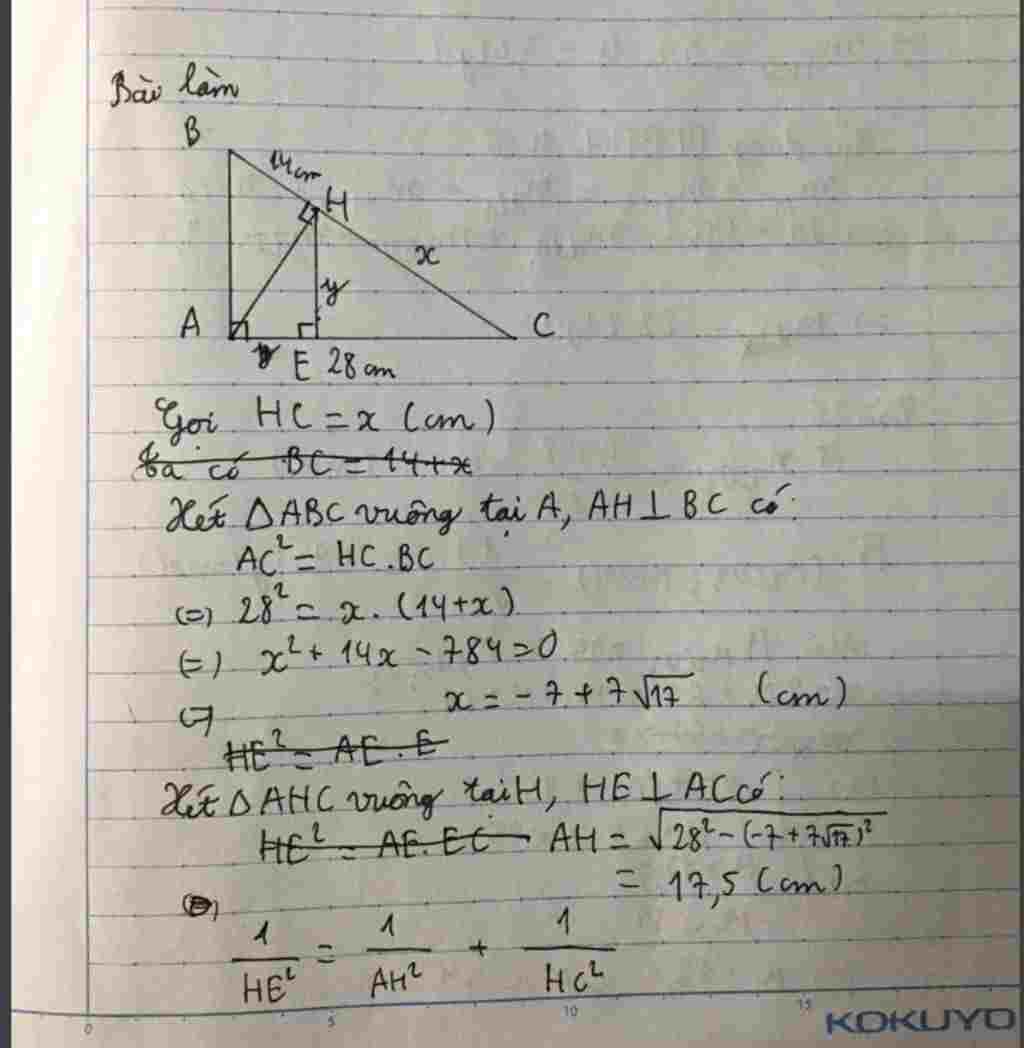 Bài làm
B
14cm
H
x
y
A
C
E 28cm
Gọi HC = x (cm)
ta có BC = 14+x
Xét △ABC vuông tại A, AH⊥BC có:
AC² = HC.BC
(=) 28² = x.(14+x)
(=) x² + 14x - 784 = 0
x = -7 + 7√17 (cm)
HE² = AE.E
Xét △AHC vuông tại H, HE⊥AC có:
HE² = AE.EC AH = √(28² - (-7+7√17)²)
= 17,5 (cm)
1/HE² = 1/AH² + 1/HC²
0 5 10 15
KOKUYO